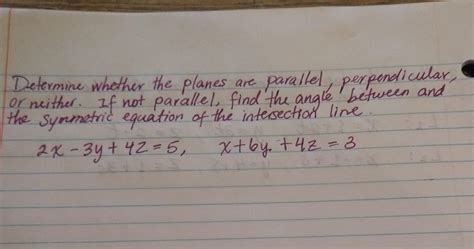 Determine whether the planes are parallel, perpendicular,
or neither. If not parallel, find the angle between and
the symmetric equation of the intersection line.
2x - 3y + 4z = 5, x + 6y + 4z = 3